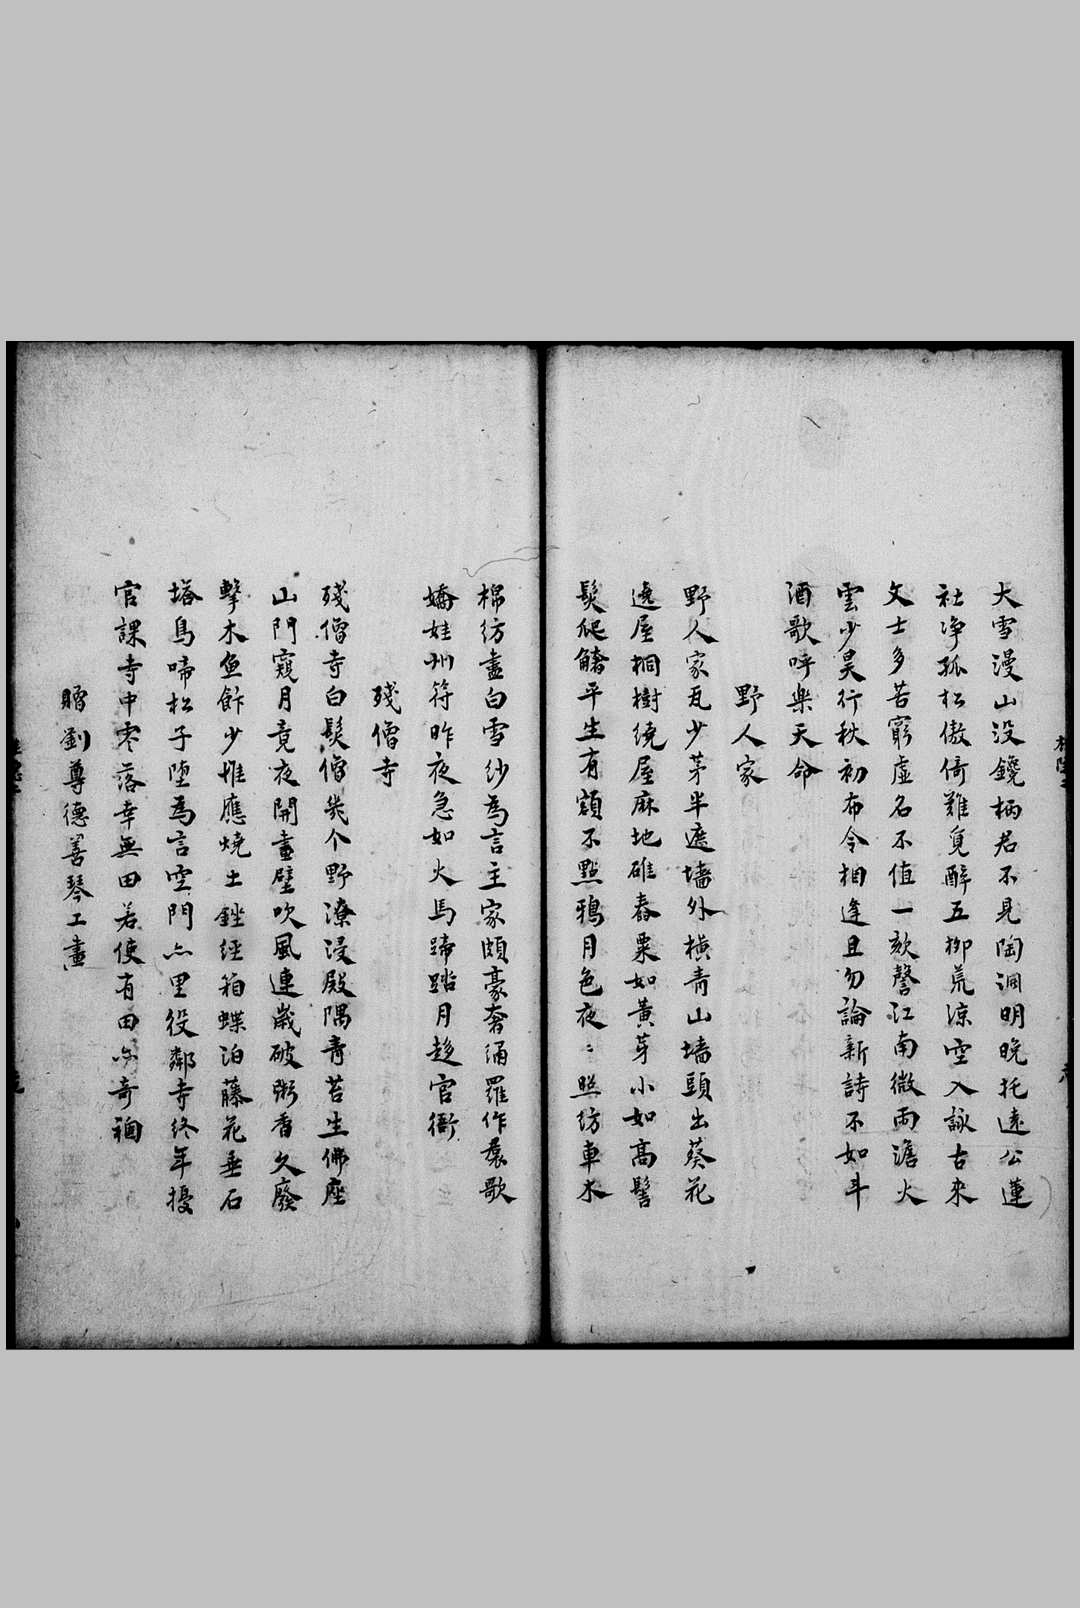 大雪漫山没鑱柄君不見陶淵明晚托遠公蓮
社淨孤松傲倚難覓醉五柳荒涼空入詠古來
文士多苦窮虛名不值一欬謦江南微雨澹火
雲少昊行秋初布令相逢且勿論新詩不如斗
酒歌呼樂天命
野人家
野人家瓦少茅半遮墻外橫青山墻頭出葵花
遶屋桐樹繞屋麻地碓舂粟如黃芽小如高髻
髮爬鬙平生有額不點鴉月色夜〻照紡車木
棉紡盡白雪紗為言主家頗豪奢誦羅作裠歌
嬌娃州符昨夜急如火馬蹄踏月趍官衙
殘僧寺
殘僧寺白髮僧幾个野潦浸殿隅青苔生佛座
山門窺月竟夜開畫壁吹風連歲破粥香久廢
擊木魚餘少惟應燒土銼經箱蝶泊藤花垂石
塔鳥啼松子墮為言空門亦里役鄰寺終年擾
官課寺中零落幸無田若使有田亦奇禍
贈劉尊德善琴工畫